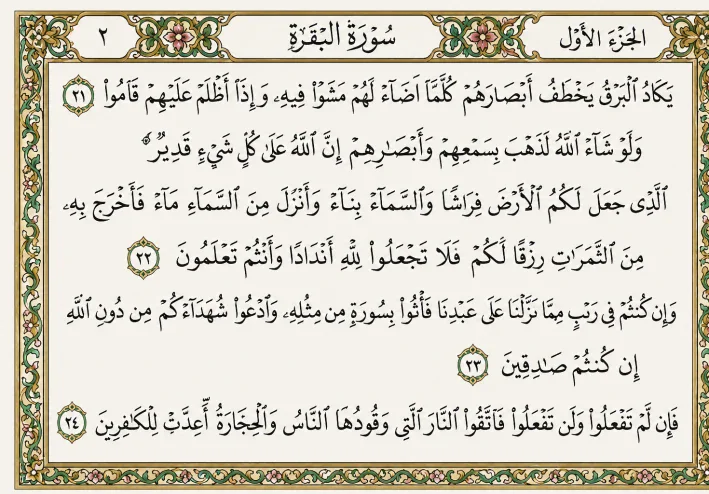 الجزء الأول
سُورَةُ البَقَرَةِ
٢
يَكَادُ ٱلْبَرْقُ يَخْطَفُ أَبْصَارَهُمْ كُلَّمَآ أَضَآءَ لَهُم مَشَوْا۟ فِيهِ وَإِذَآ أَظْلَمَ عَلَيْهِمْ قَامُوا۟ ٢١
وَلَوْ شَآءَ ٱللَّهُ لَذَهَبَ بِسَمْعِهِمْ وَأَبْصَٰرِهِمْ إِنَّ ٱللَّهَ عَلَىٰ كُلِّ شَىْءٍ قَدِيرٌ
ٱلَّذِى جَعَلَ لَكُمُ ٱلْأَرْضَ فِرَاشًا وَٱلسَّمَآءَ بِنَآءً وَأَنْزَلَ مِنَ ٱلسَّمَآءِ مَآءً فَأَخْرَجَ بِهِۦ
مِنَ ٱلثَّمَرَٰتِ رِزْقًا لَّكُمْ فَلَا تَجْعَلُوا۟ لِلَّهِ أَنْدَادًا وَأَنْتُمْ تَعْلَمُونَ ٢٢
وَإِن كُنتُمْ فِى رَيْبٍ مِمَّا نَزَّلْنَا عَلَىٰ عَبْدِنَا فَأْتُوا۟ بِسُورَةٍ مِن مِثْلِهِۦ وَٱدْعُوا۟ شُهَدَآءَكُمْ مِن دُونِ ٱللَّهِ
إِن كُنتُمْ صَٰدِقِينَ ٢٣
فَإِن لَّمْ تَفْعَلُوا۟ وَلَن تَفْعَلُوا۟ فَٱتَّقُوا۟ ٱلنَّارَ ٱلَّتِى وَقُودُهَا ٱلنَّاسُ وَٱلْحِجَارَةُ أُعِدَّتْ لِلْكَافِرِينَ ٢٤